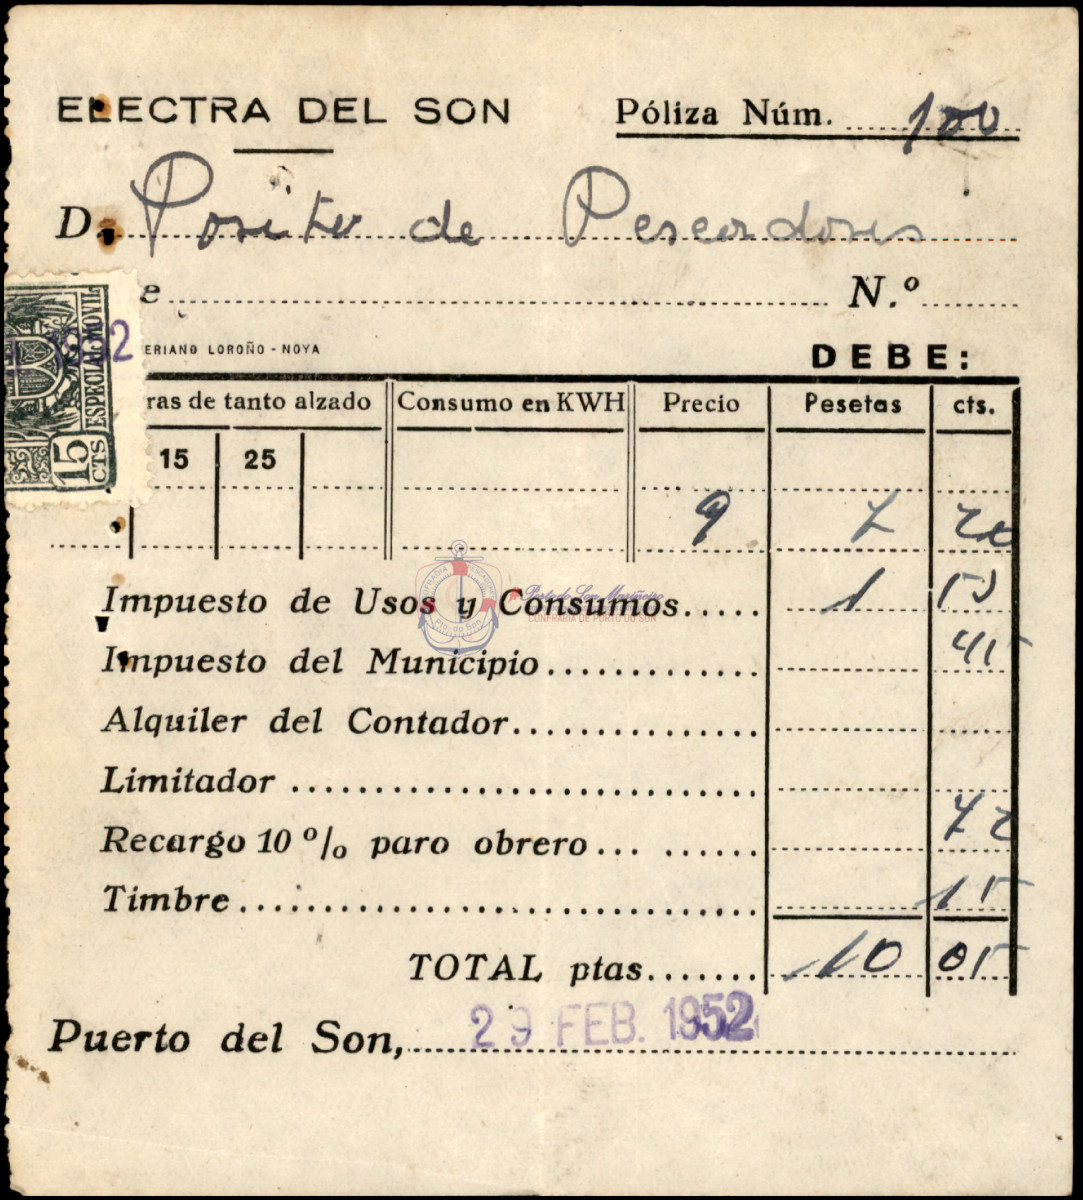 ELECTRA DEL SON Póliza Núm. 100
D. Posito de Pescadores
e N.º
ERIANO LOROÑO - NOYA DEBE:
1952
ESPECIAL MOVIL
15 CTS
ras de tanto alzado Consumo en KWH Precio Pesetas cts.
15 25
9 7 20
Impuesto de Usos y Consumos..... 1 53
Impuesto del Municipio............. 45
Alquiler del Contador...............
Limitador ............................
Recargo 10 º/o paro obrero... ...... 72
Timbre............................... 15
TOTAL ptas....... 10 05
Puerto del Son, 29 FEB. 1952
Pto. do Son
Porto do Son Mariñeiro
CONFRARIA DE PORTO DO SON